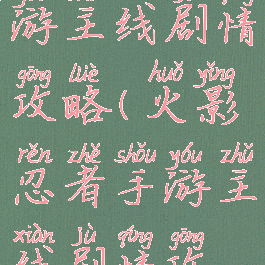 游主线剧情
gōng lüè huǒ yǐng
攻略(火影
rěn zhě shǒu yóu zhǔ
忍者手游主
xiàn jù qíng gōng
线剧情攻